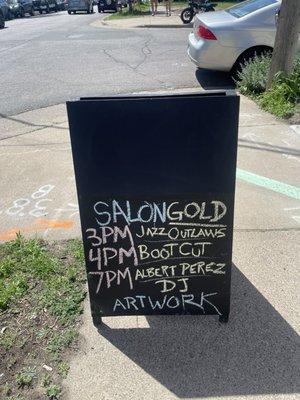 SALON GOLD
3PM JAZZ OUTLAWS
4PM BOOT CUT
7PM ALBERT PEREZ
DJ
ARTWORK